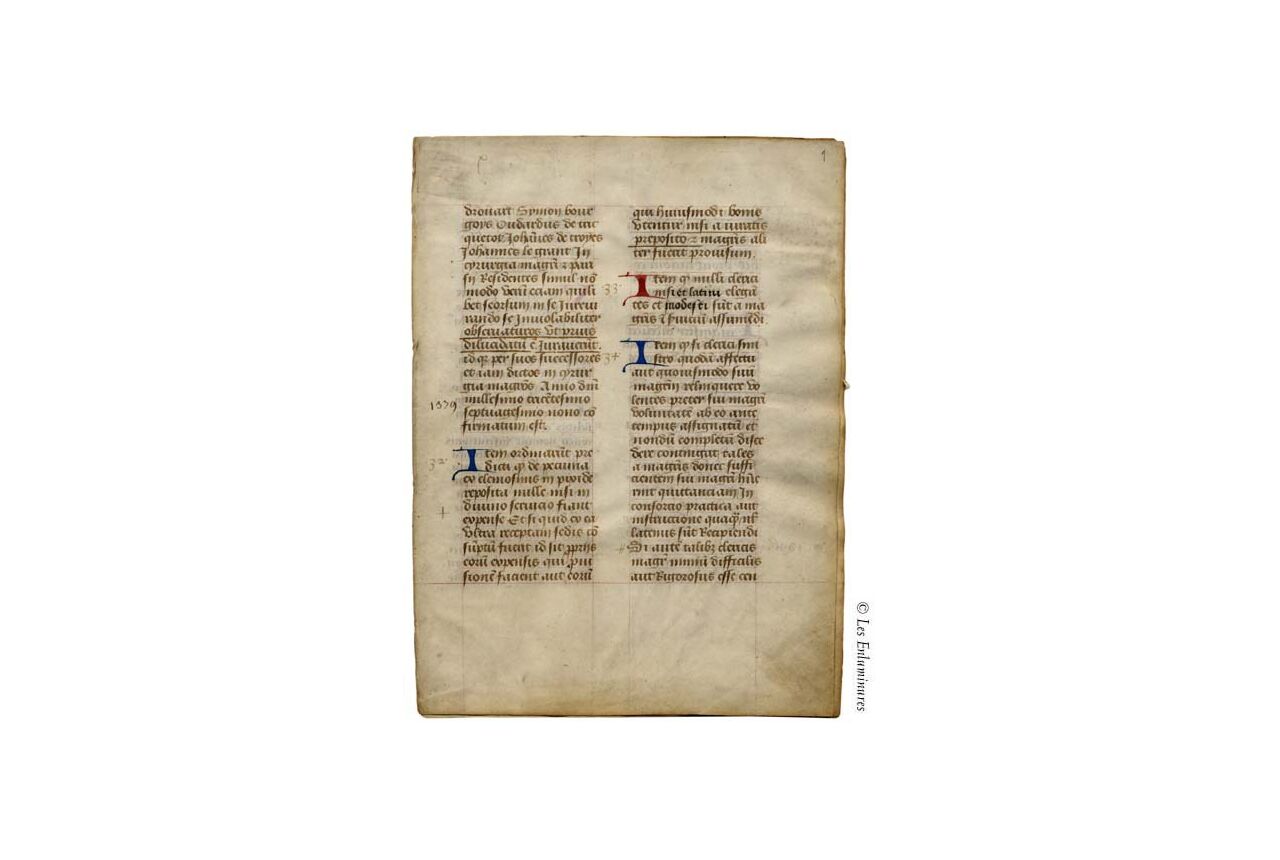 1
drouart Symon bour
goys Oudardus de tric
quetot Johãnes de troyes
Johannes le grant In
cyrurgia magr̃i ⁊ pari
sii Residentes simul nõ
modo verũ eciam quili
bet seorsum in se Iureiu
rando se Inviolabiliter
obseruaturos vt prius
dilucidatũ ẽ Iurauerũt.
id qz per suos successores
et iam dictos in cyrur
gia magr̃os Anno dñi
1379
millesimo trecẽtesimo
septuagesimo nono cõ
firmatum est.
32
Item ordinarũt pre
dicti qz de pecunia
ex elemosinis in pixide
reposita nulle nisi in
+
diuino seruicio fiant
expense Et si quid ex ea
vltra receptam sedis cõ
sũptũ fuerit id sit ꝓprijs
eorũ expensis qui ꝓui
sionẽ facient aut eorũ
qui huiusmodi bonis
vtentur nisi a iuratis
preposito ⁊ magr̃is ali
ter fuerit prouisum.
33
Item qz nulli clerici
nisi et latini elegã
tes et modesti sũt a ma
gr̃is ĩ suũ assumẽdi.
34
Item qz si clerici sini
stro quodã affectu
aut quouismodo suũ
magr̃m relinquere vo
lentes preter sui magr̃i
voluntatẽ ab eo ante
tempus assignatũ et
nondũ completũ disce
dere contingat tales
a magr̃is donec suffi
cientem sui magr̃i hũe
rint quittanciam In
consorcio practica aut
instruccione quaqz nl̃
latenus sũt Recipiendi
Si autẽ talibz clericis
magr̃ nimiũ difficilis
aut Rigorosus esse cen
© Les Enluminures